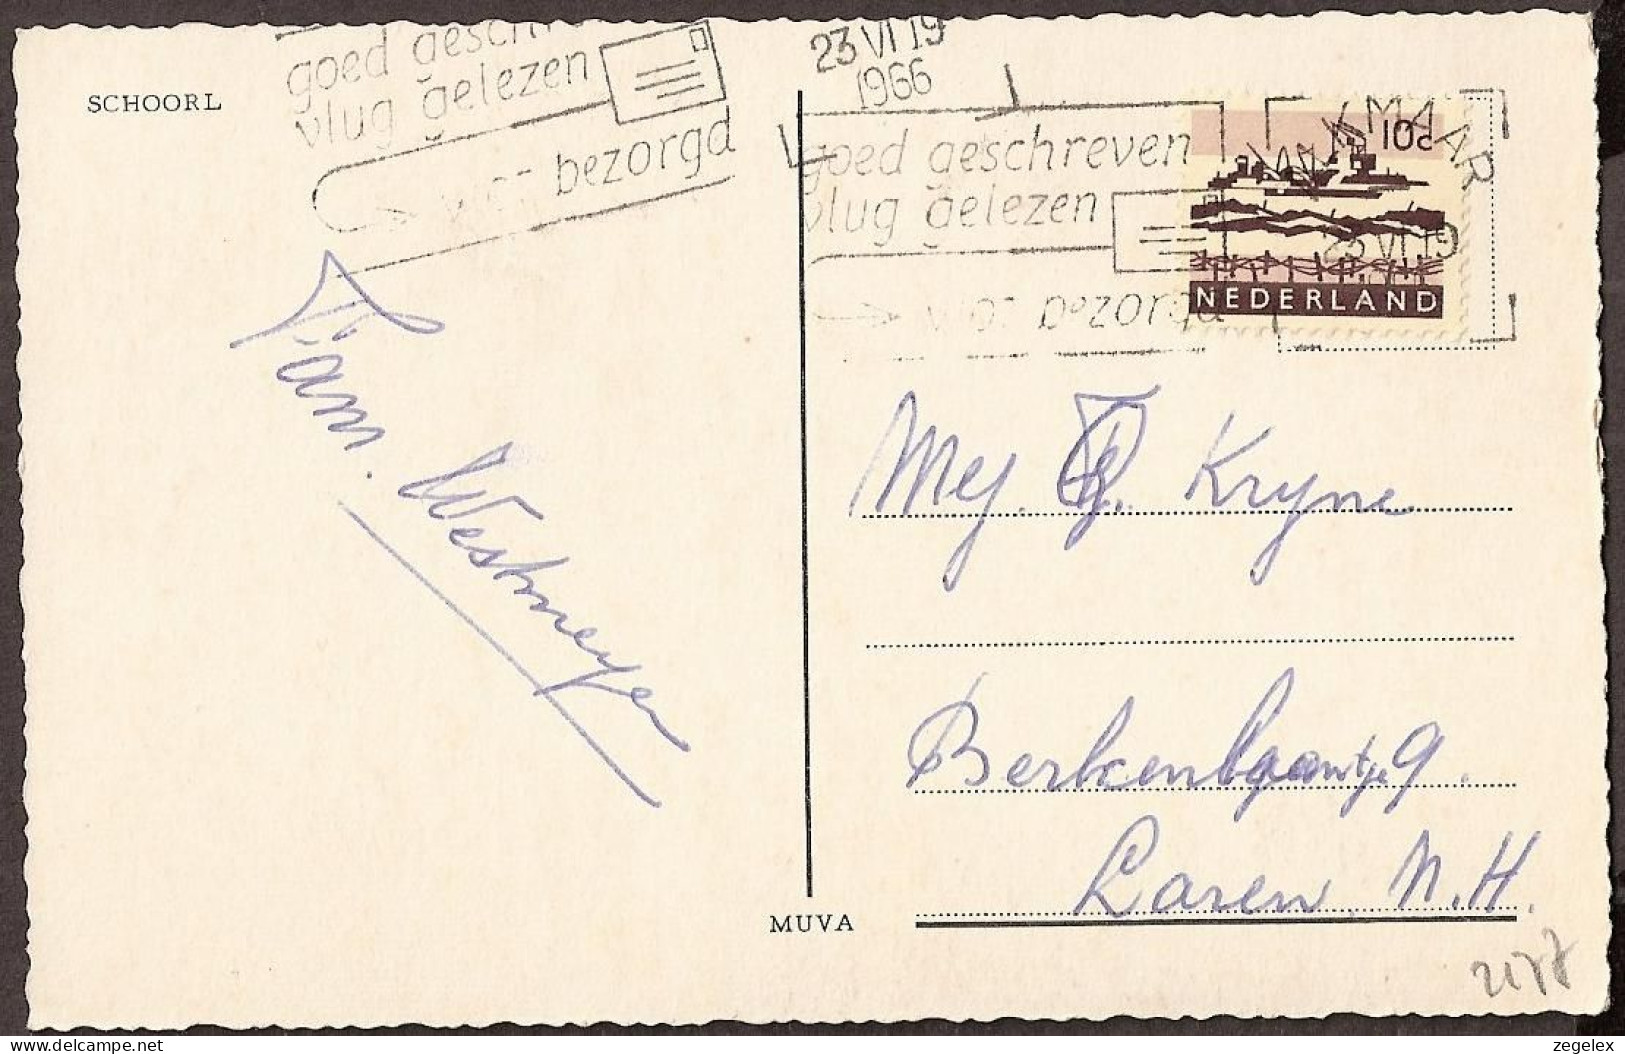 SCHOORL
goed geschre
vlug gelezen
bezorgd
23 VI 19
1966
goed geschreven
vlug gelezen
vlot bezorgd
ALKMAAR
10c
23 VI 19
NEDERLAND
Fam. Westmeyer
Mej. Kryne
Berkenlaantje 9.
Laren. N.H.
MUVA
© zegelex
zegelex.delcampe.net